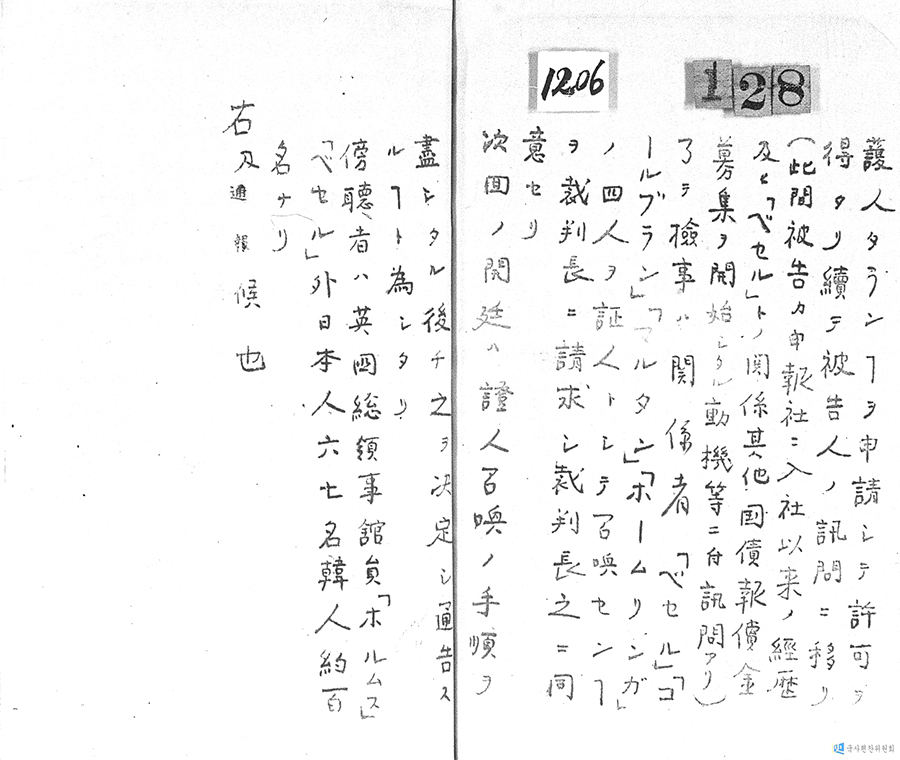 1206
128
護人タランヿヲ申請シテ許可ヲ
得タリ續テ被告人ノ訊問ニ移リ
(此間被告カ申報社ニ入社以来ノ經歴
及ヒ「ベセル」トノ関係其他国債報償金
募集ヲ開始シタル動機等ニ付訊問アリ)
了テ檢事ハ関係者「ベセル」「コ
ールブラン」「マルタン」「ホームリンガ」
ノ四人ヲ証人トシテ召喚センヿ
ヲ裁判長ニ請求シ裁判長之ニ同
意セリ
次回ノ開廷ハ證人召喚ノ手順ヲ
盡シタル後チ之ヲ决定シ通告ス
ルヿト為シタリ
傍聽者ハ英国総領事館員「ホルムス」
「ベセル」外日本人六七名韓人約百
名ナリ
右及通報候也
국사편찬위원회